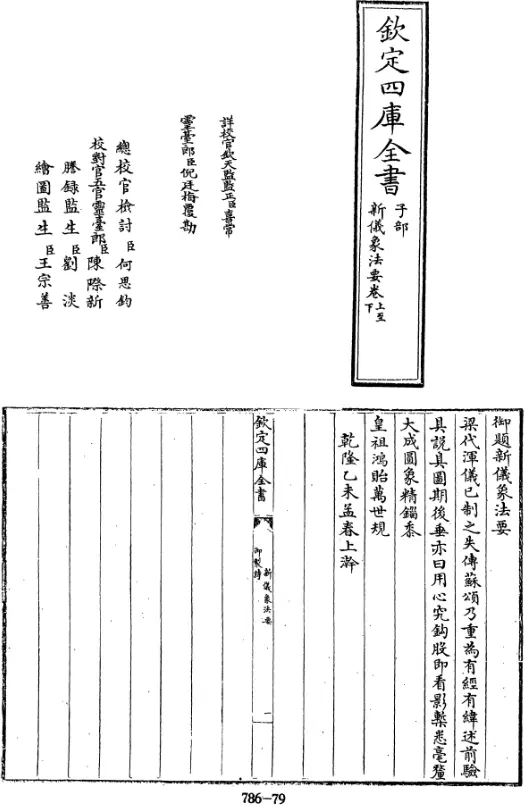 欽定四庫全書
子部
新儀象法要卷上至下
詳校官欽天監監正臣喜常
靈臺郎臣倪廷梅覆勘
總校官檢討臣何思鈞
校對官五官靈臺郎臣陳際新
謄錄監生臣劉淡
繪圖監生臣王宗善
御題新儀象法要
梁代渾儀已制之失傳蘇頌乃重為有經有緯述前驗
具說具圖期後垂亦曰用心究鈎股即看影臬悉毫釐
大成圖象精錙黍
皇祖鴻貽萬世規
乾隆乙未孟春上澣
欽定四庫全書
新儀象法要
御製詩
一
786-79